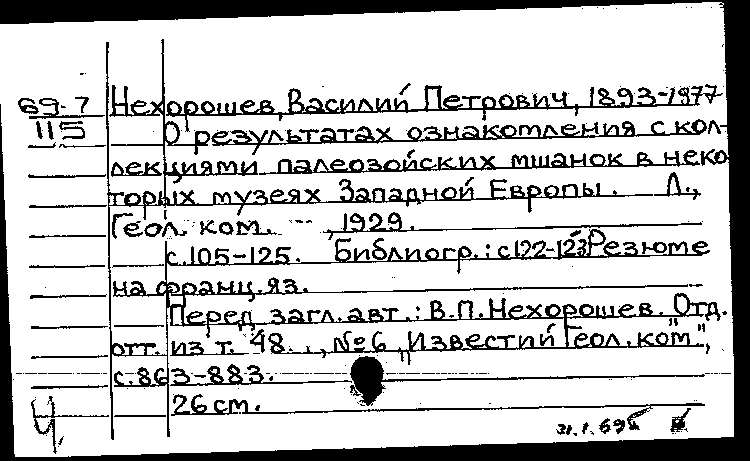 69-7
115
Нехорошев, Василий Петрович, 1893-1977
О результатах ознакомления с кол-
лекциями палеозойских мшанок в неко
торых музеях Западной Европы. Л.,
Геол. ком. , 1929.
с.105-125. Библиогр.: с122-123 Резюме
на франц. яз.
Перед загл. авт.: В.П.Нехорошев. Отд.
отт. из т. 48.., №6 "Известий Геол. ком",
с.863-883.
26см.
Ч.